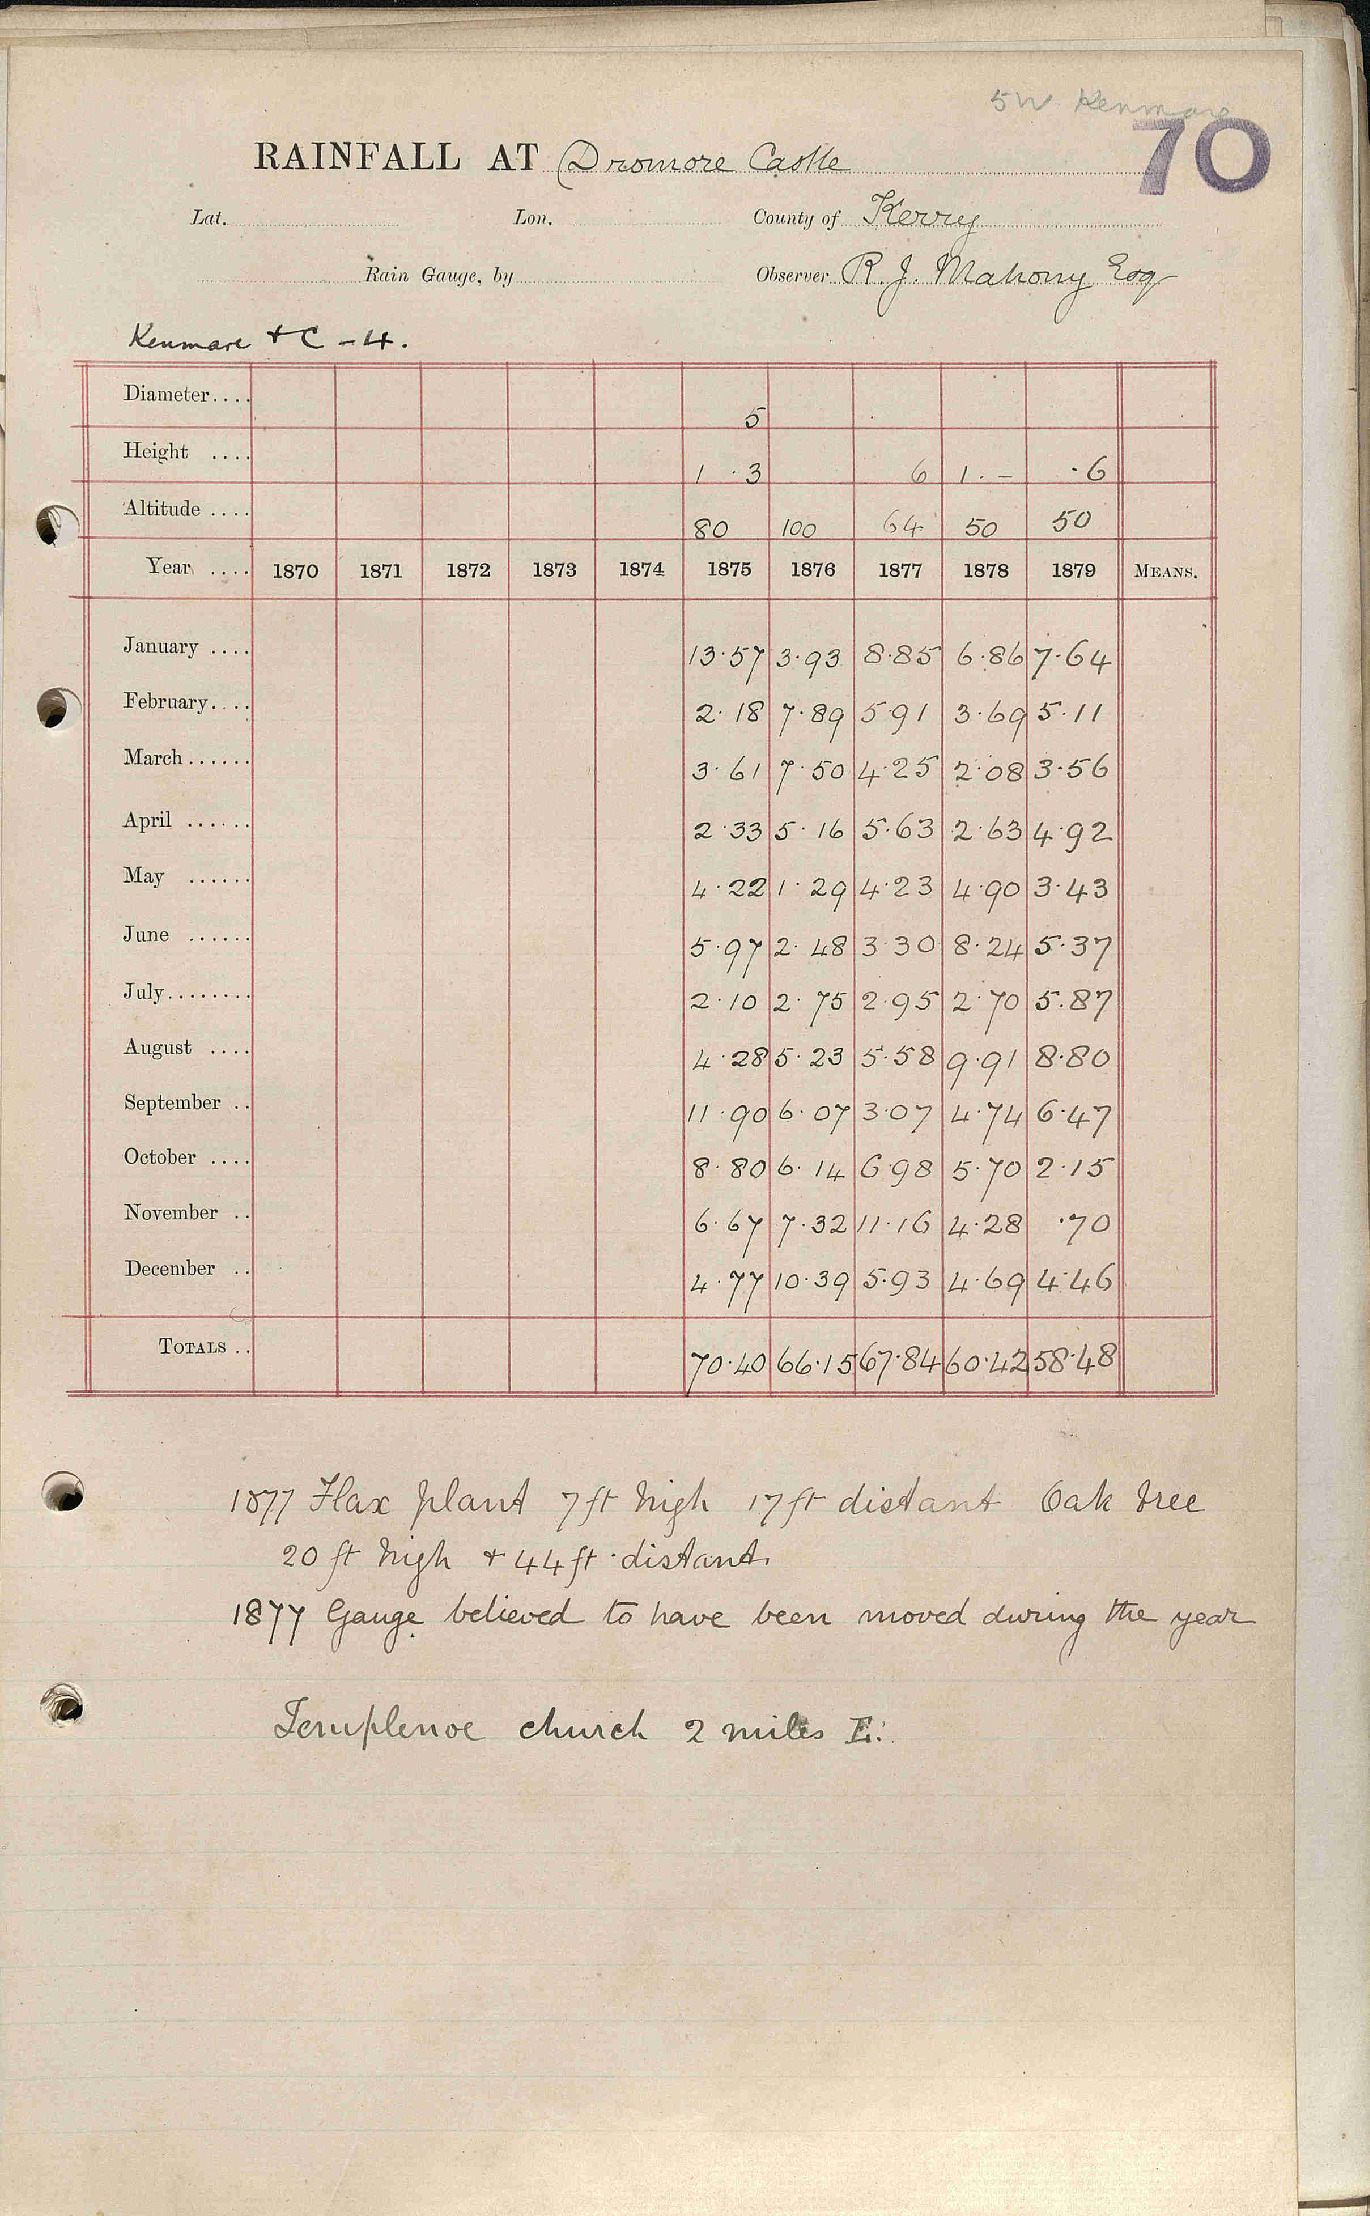 5W Kenmare
70
RAINFALL AT Dromore Castle
Lat. Lon. County of Kerry
Rain Gauge, by Observer R. J. Mahony Esq
Kenmare + C - 4.
Diameter.... 5
Height .... 1 . 3 6 1 . - .6
Altitude .... 80 100 64 50 50
Year .... 1870 1871 1872 1873 1874 1875 1876 1877 1878 1879 MEANS.
January .... 13.57 3.93 8.85 6.86 7.64
February.... 2.18 7.89 5.91 3.69 5.11
March...... 3.61 7.50 4.25 2.08 3.56
April ...... 2.33 5.16 5.63 2.63 4.92
May ...... 4.22 1.29 4.23 4.90 3.43
June ...... 5.97 2.48 3.30 8.24 5.37
July........ 2.10 2.75 2.95 2.70 5.87
August .... 4.28 5.23 5.58 9.91 8.80
September .. 11.90 6.07 3.07 4.74 6.47
October .... 8.80 6.14 6.98 5.70 2.15
November .. 6.67 7.32 11.16 4.28 .70
December .. 4.77 10.39 5.93 4.69 4.46
TOTALS .. 70.40 66.15 67.84 60.42 58.48
1877 Flax plant 7ft high 17ft distant Oak tree
20 ft high + 44ft distant.
1877 Gauge believed to have been moved during the year
Templenoe church 2 miles E.